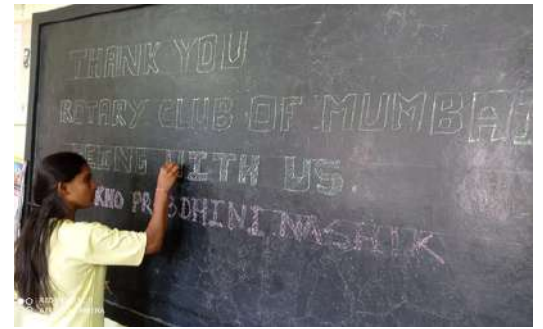 THANK YOU
ROTARY CLUB OF MUMBAI
BEING WITH US
KHO PRABODHINI NASHIK